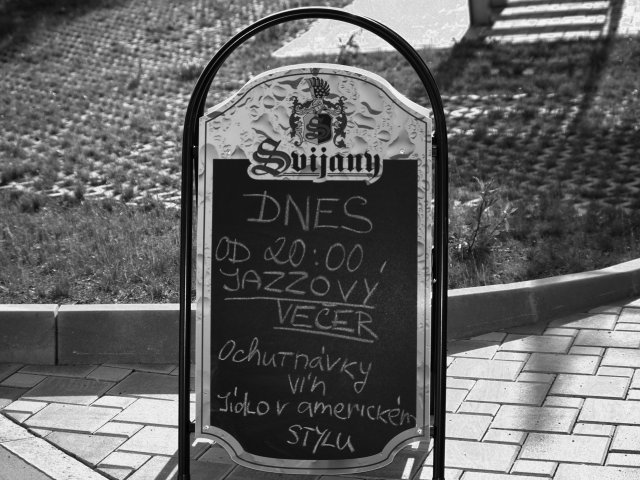 Svijany
DNES
OD 20:00
JAZZOVÝ
VEČER
Ochutnávky
vín
Jídlo v americkém
STYLU